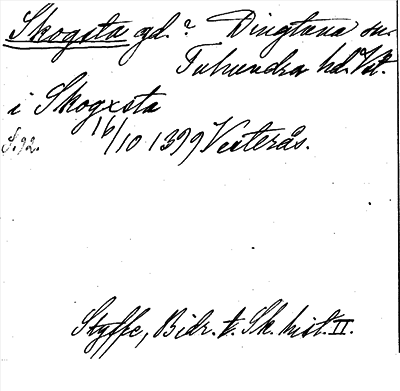 Skogsta gd.? Dingtuna sn.
Tuhundra hd. Vstm.
i Skogxsta
S. 92. 16/10 1399 Vesterås.
Styffe, Bidr. t. Sk. hist. II.